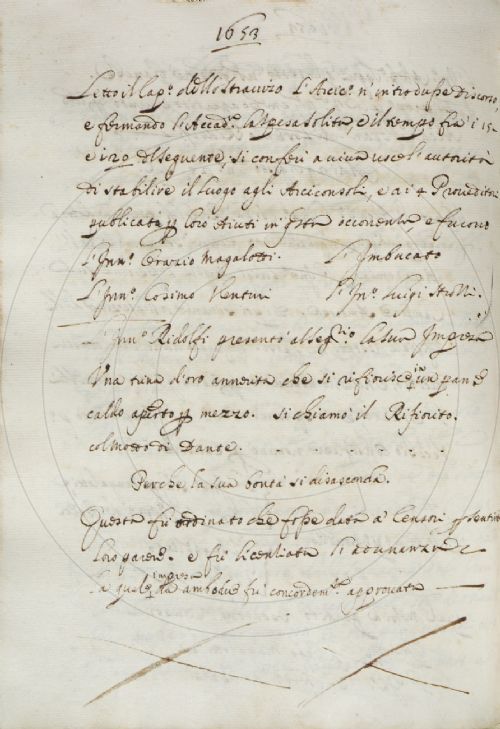 1653
Letto il Cap.º dello Stravizo l'Arcic.º n'introdusse discorso,
e fermando l'Accad.ª la spesa solita, e il tempo fra i 15.
e i 20 del seguente, si conferì a viva voce l'autorità
di stabilire il luogo agli Arciconsoli, e ai 4 Proveditori
publicata p loro Aiuti in qsta occorrenza, e furono
L'Inn.º Orazio Magalotti. L'Imbucato
L'Inn.º Cosimo Venturi L'In.º Luigi Strozzi.
L'Inn.º Ridolfi presentò al Seg.rio la sua Impresa
Una tuna d'oro annerita che si rifiorisce in un pane
caldo aperto p mezzo. si chiamò il Rifiorito.
col motto di Dante.
Perche la sua bontà si disasconda.
Questa fu ordinato che fosse data a' Censori p sentire
loro parere. e fu licenziata l'adunanza
la quale impresa da ambidue fu concordem.te approvata